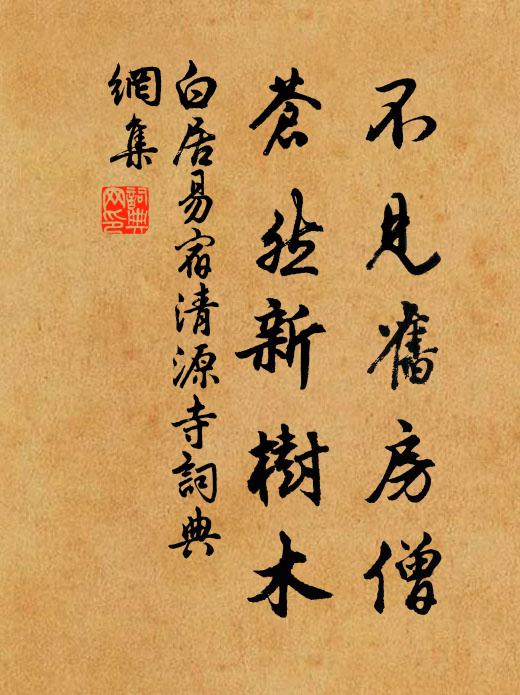 不見舊房僧
蒼然新樹木
白居易宿清源寺詞典
網集
詞典
網印